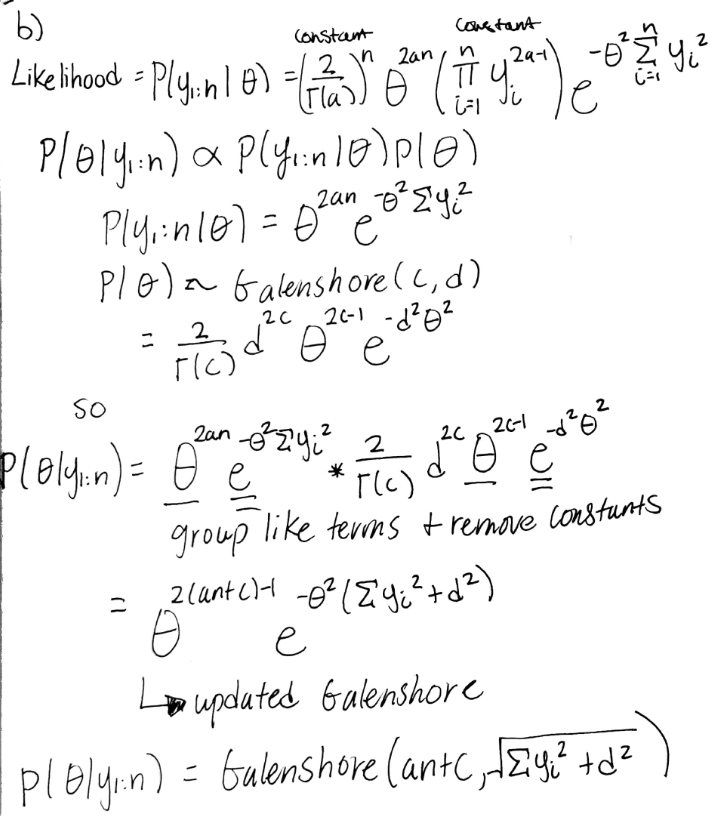 b)
constant constant
Likelihood = P(y₁:n | θ) = (2/Γ(a))ⁿ θ^2an (∏_{i=1}^n y_i^2a-1) e^-θ² Σ_{i=1}^n y_i²
P(θ|y₁:n) ∝ P(y₁:n|θ)P(θ)
P(y₁:n|θ) = θ^2an e^-θ² Σy_i²
P(θ) ~ Galenshore(c,d)
= 2/Γ(c) d^2c θ^2c-1 e^-d²θ²
so
P(θ|y₁:n) = θ^2an e^-θ² Σy_i² * 2/Γ(c) d^2c θ^2c-1 e^-d²θ²
group like terms + remove constants
= θ^2(an+c)-1 e^-θ²(Σy_i²+d²)
↳ updated Galenshore
P(θ|y₁:n) = Galenshore(an+c, √(Σy_i² + d²))